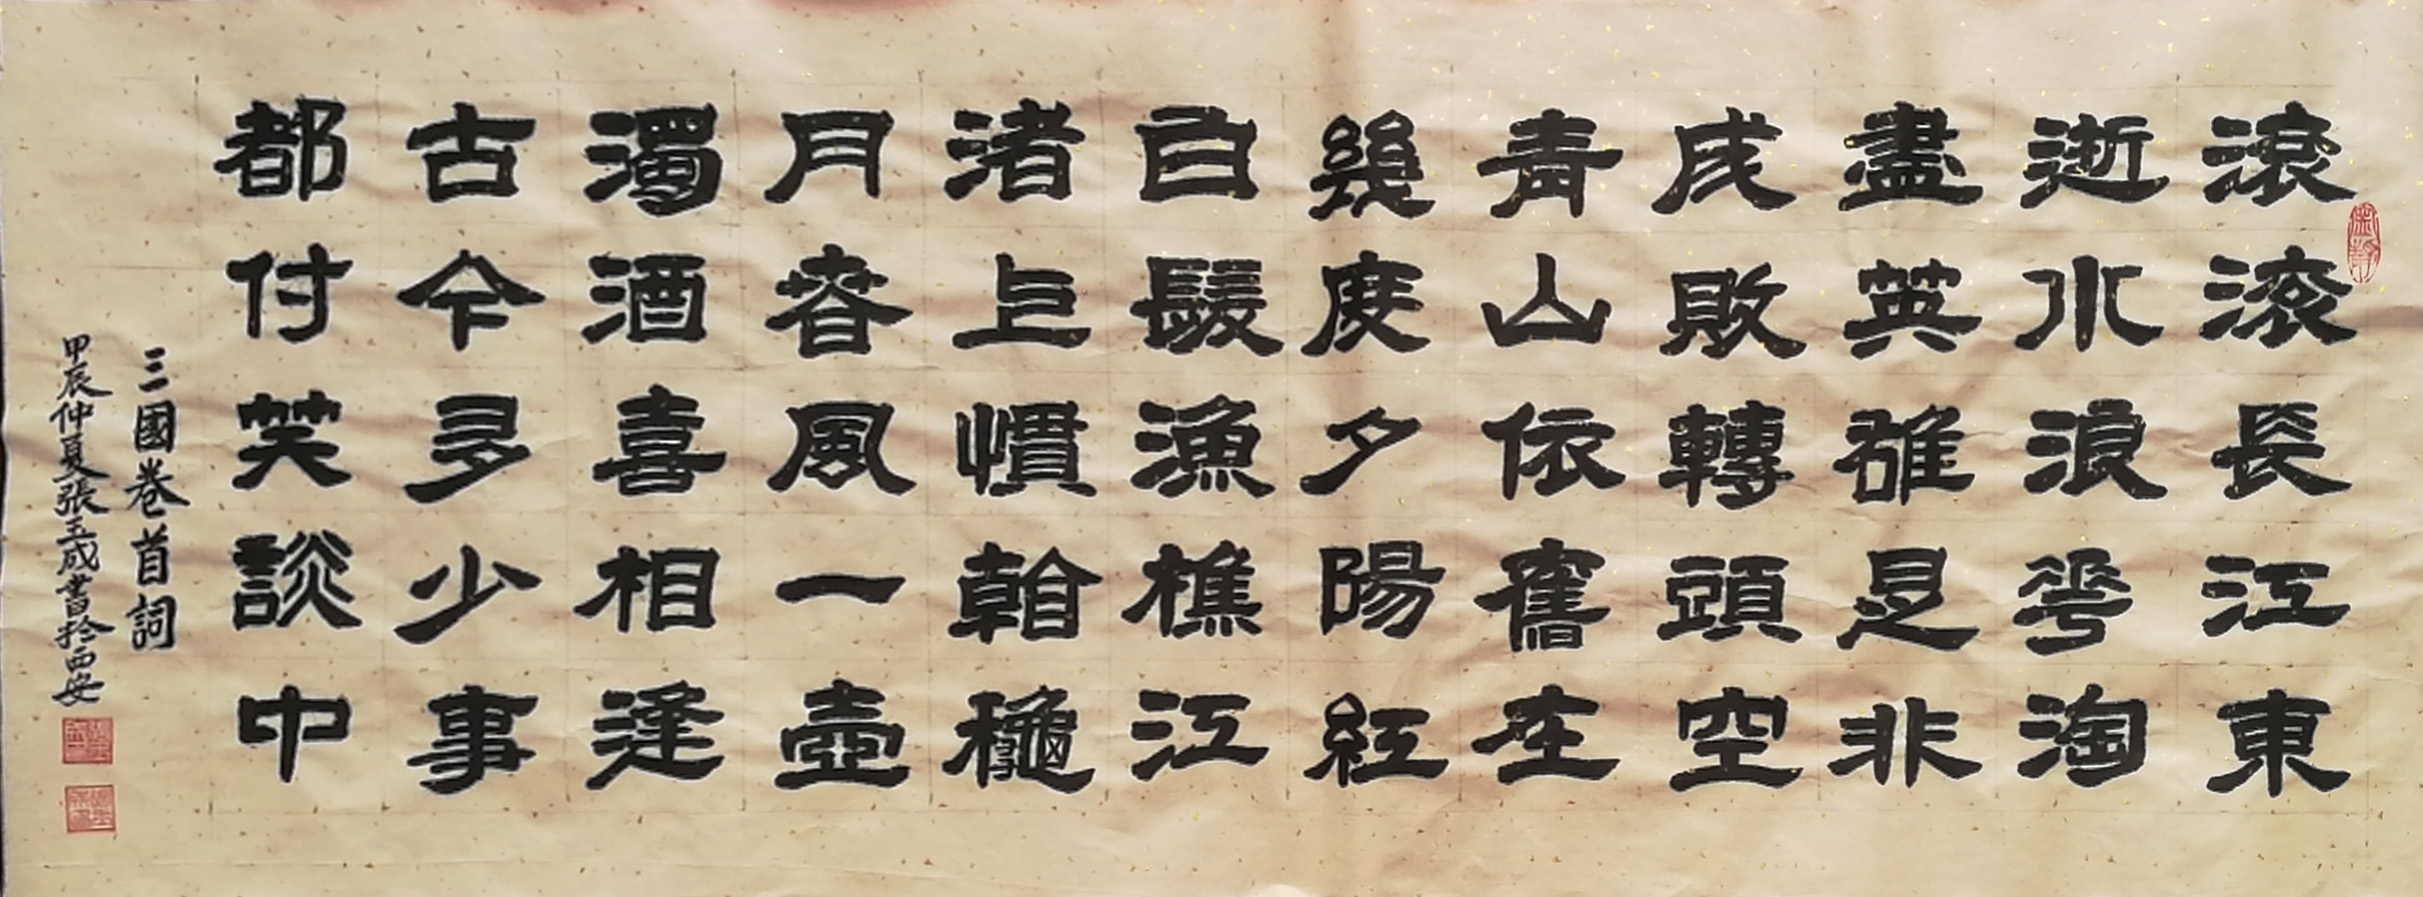 滾滾長江東
逝水浪花淘
盡英雄是非
成敗轉頭空
青山依舊在
幾度夕陽紅
白髮漁樵江
渚上慣看秋
月春風一壺
濁酒喜相逢
古今多少事
都付笑談中
三國卷首詞
甲辰仲夏張玉成書於西安